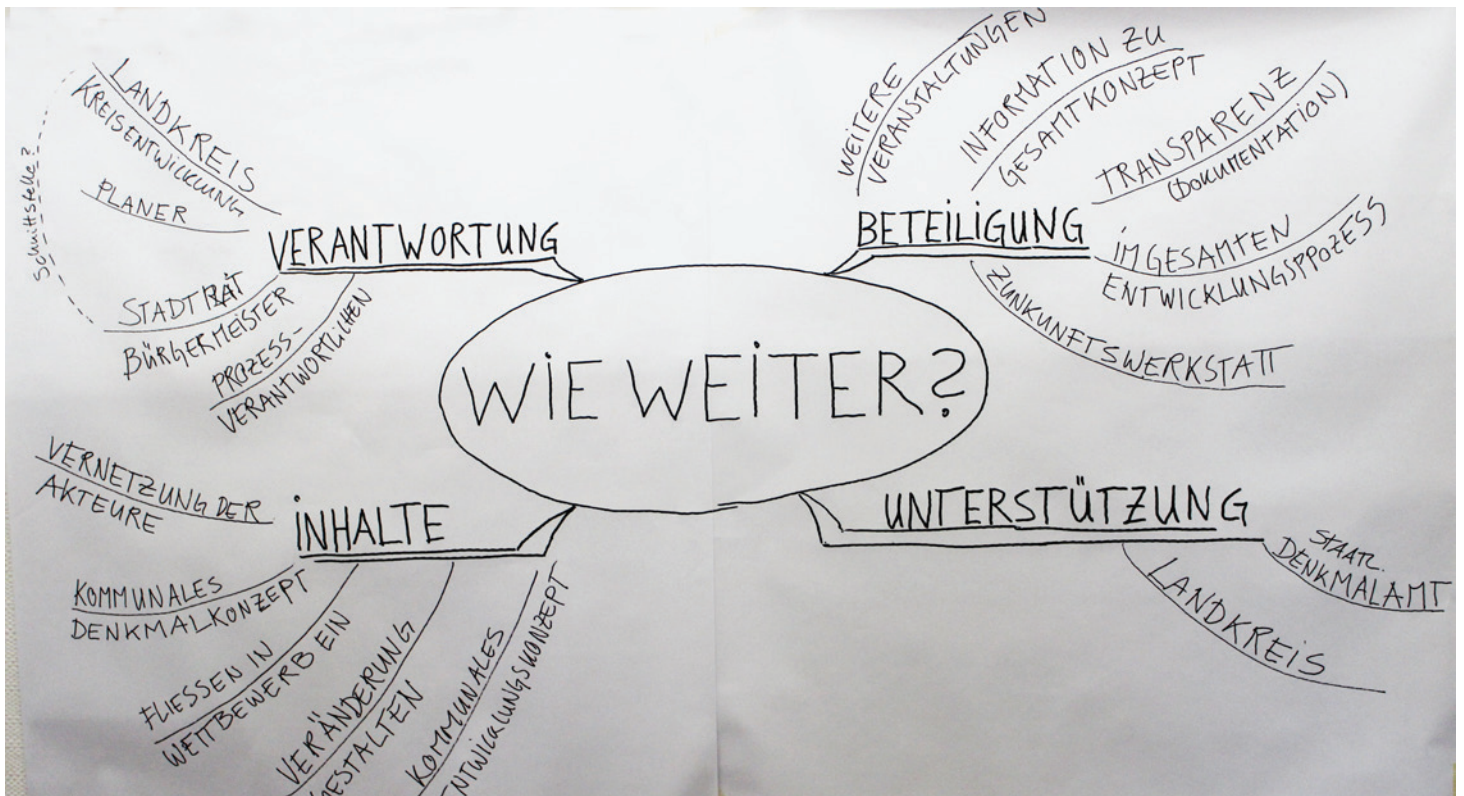 WIE WEITER?
VERANTWORTUNG
LANDKREIS
KREISENTWICKLUNG
PLANER
STADTRAT
BÜRGERMEISTER
PROZESS-
VERANTWORTLICHEN
Schnittstelle?
BETEILIGUNG
WEITERE
VERANSTALTUNGEN
INFORMATION ZU
GESAMTKONZEPT
TRANSPARENZ
(DOKUMENTATION)
IM GESAMTEN
ENTWICKLUNGSPPOZESS
ZUNKUNFTSWERKSTATT
INHALTE
VERNETZUNG DER
AKTEURE
KOMMUNALES
DENKMALKONZEPT
FLIESSEN IN
WETTBEWERB EIN
VERÄNDERUNG
GESTALTEN
KOMMUNALES
ENTWICKLUNGSKONZEPT
UNTERSTÜTZUNG
STAATL.
DENKMALAMT
LANDKREIS